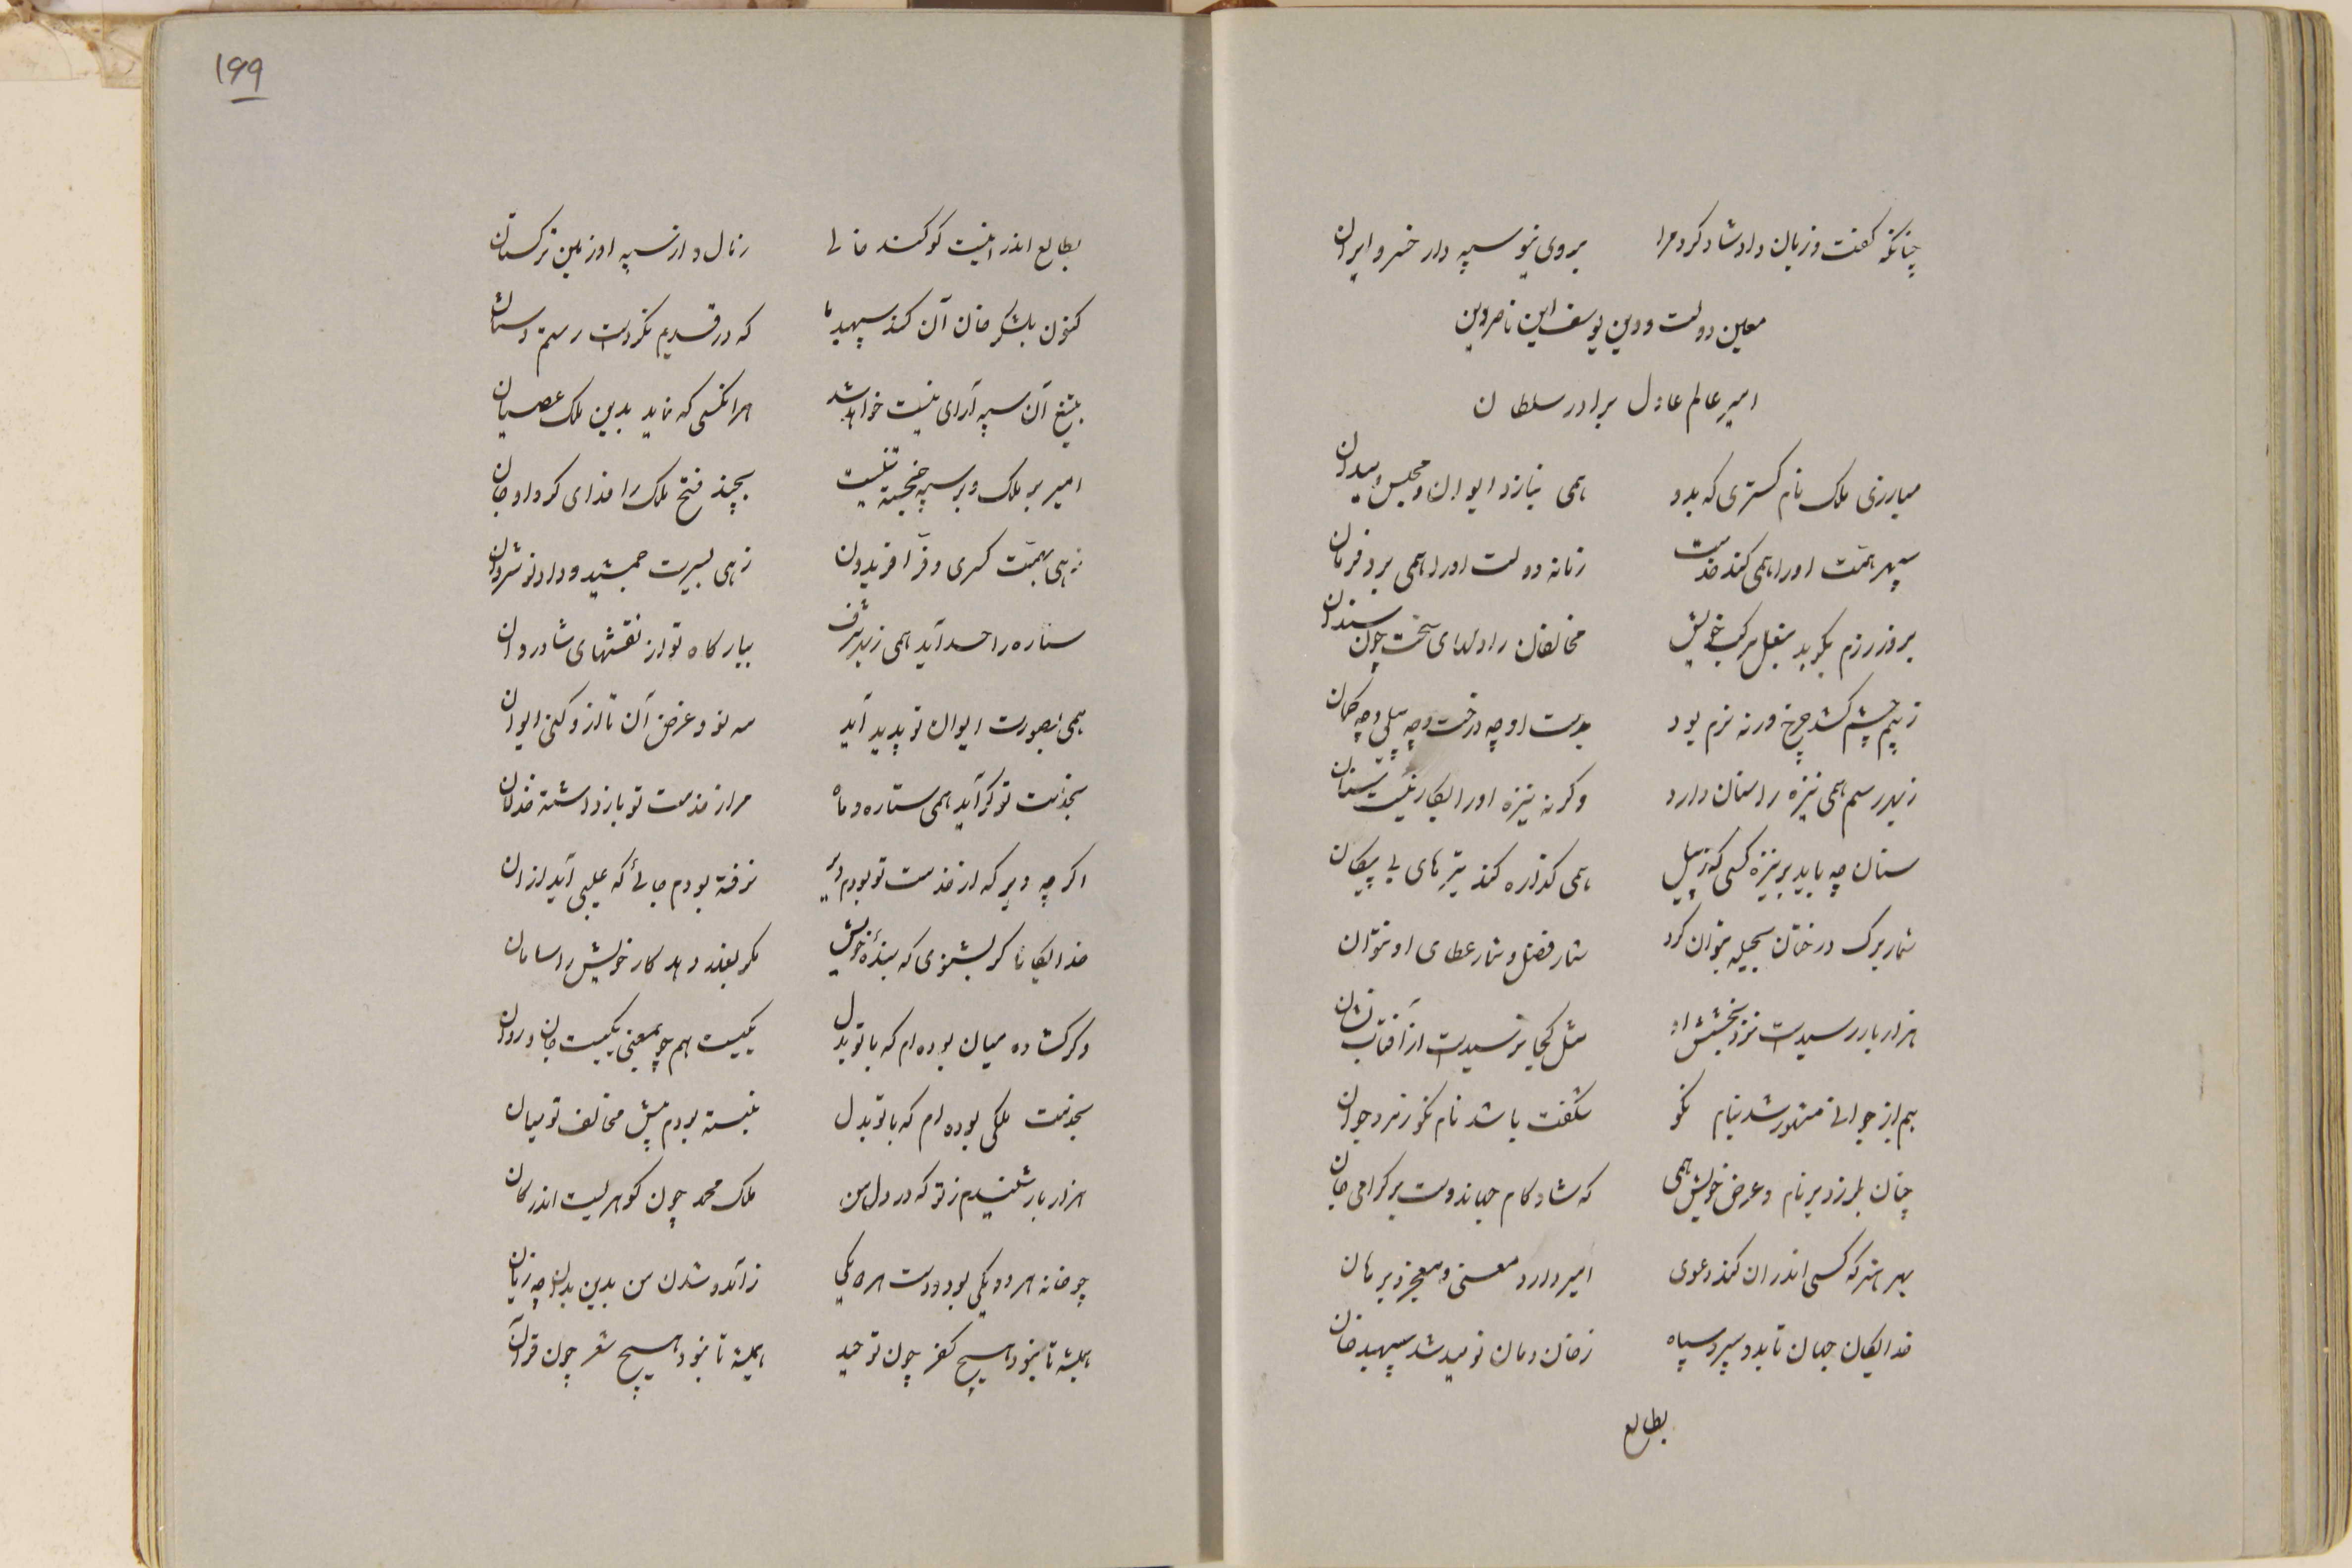 چنانکه گفت و زبان داد شاد کرد مرا بروی نیو سپه دار خسرو ایران
معین دولت و دین یوسف ابن ناصر دین
امیر عالم عادل برادر سلطان
مبارزی ملک نام گستری که بدو همی بنازد ایوان و مجلس و میدان
سپهر همت او را همی کند خدمت زمانه دولت او را همی برد فرمان
بروز رزم بکوبد بنعل مرکب خویش مخالفان را دلهای سخت چون سندان
ز بیم چشم کشد چرخ ورنه نرم بود بدست او چه درخت و چه پیل و چه کمان
ز بهر رسم همی نیزه را سنان دارد وگرنه نیزه او را بکار نیست سنان
سنان چه باید بر نیزه کسی که ز پیل همی گذاره کند تیرهای بی پیکان
شمار برگ درختان بحیله بتوان کرد شمار فضل و شمار عطای او نتوان
هزار بار رسیدست نزد بخشش او مثل کجا نرسیدست از آفتاب نشان
هم از جوانی مشهور شد بنام نکو شگفت باشد نام نکو ز مرد جوان
چنان بلرزد بر نام و عرض خویش همی که شاد کام جهاندوست بر گرامی جان
بهر هنر که کسی اندران کند دعوی امیر دارد معنی و معجز و برهان
خدایگان جهان تا بدو سپرد سپاه ز خان و مان نومید شد سپهبد خان
بطالع

۱۹۹
بطالع اندر اینست کو کند خالی ز مال دار سپه او زمین ترکستان
کنون بلشکر خان آن کند سپهبد ما که در قدیم نکردست رستم دستان
بتیغ آن سپه آرای نیست خواهد شد هر انکسی که نماید بدین ملک عصیان
امیر بر ملک و بر سپه خجسته تنیست بچند فتح ملک را فدای کرد او جان
زهی بهمت کسری و فر افریدون زهی بسیرت جمشید و داد نوشروان
ستاره را حسد آید همی ز بهر شرف ببارگاه تو از نقشهای شادروان
همی بصورت ایوان تو پدید آید مه نو و غرض آن تا ازو کنی ایوان
بخدمت تو گرآید همی ستاره و ماه مرا ز خدمت تو باز داشته خذلان
اگر چه دیر که از خدمت تو بودم دیر نرفته بودم جائی که عیبی آید ازان
خدایگانا گر بشنوی که بنده خویش مگر بعذر دهد کار خویش را سامان
وگر گشاده میان بوده ام که با تو بدل یکیست هم چو بمعنی یکیست جان و روان
بخدمت ملکی بوده ام که با تو بدل نبسته بودم پیش مخالف تو میان
هزار بار شنیدم ز تو که در دل من ملک محمد چون گوهریست اندر کان
چو خانه هر دو یکی بود و دست هر دو یکی ز آمد و شدن من بدین بدان چه زیان
همیشه تا نبود هیچ کفر چون توحید همیشه تا نبود هیچ شعر چون قرآن